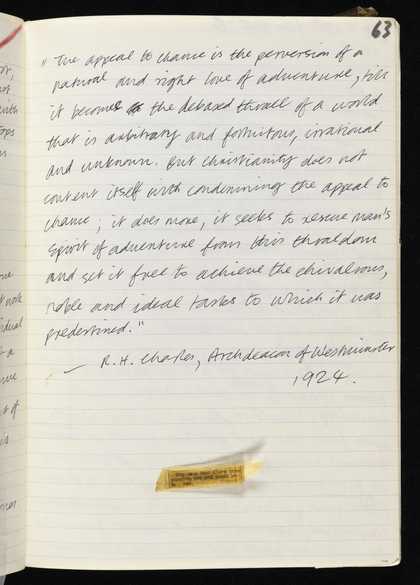 63
"The appeal to chance is the perversion of a
natural and right love of adventure, till
it becomes the debased thrall of a world
that is arbitrary and fortuitous, irrational
and unknown. But Christianity does not
content itself with condemning the appeal to
chance; it does more, it seeks to rescue man's
spirit of adventure from this thraldom
and set it free to achieve the chivalrous,
noble and ideal tasks to which it was
predestined."
— R. H. Charles, Archdeacon of Westminster
1924.